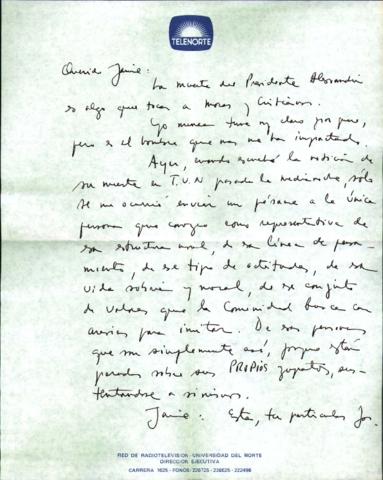 TELENORTE
Querido Jaime:
La muerte del Presidente Alessandri
es algo que toca a moros y cristianos.
Yo nunca tuve muy claro por qué,
pero es el hombre que más me ha impactado.
Ayer, cuando escuché la noticia de
su muerte en T.V.N pasada la medianoche, sólo
se me ocurrió enviar un pésame a la única
persona que conozco como representativa de
esa estructura moral, de esa línea de pensa-
miento, de ese tipo de actitudes, de esa
vida sobria y moral, de ese conjunto
de valores que la Comunidad busca con
ansias para imitar. De esas personas
que son simplemente así, porque están
parados sobre sus PROPIOS zapatos, sus-
tentándose a sí mismos.
Jaime: Este, tu particular
RED DE RADIOTELEVISION - UNIVERSIDAD DEL NORTE
DIRECCION EJECUTIVA
CARRERA 1625 - FONOS: 226725 - 226625 - 222496